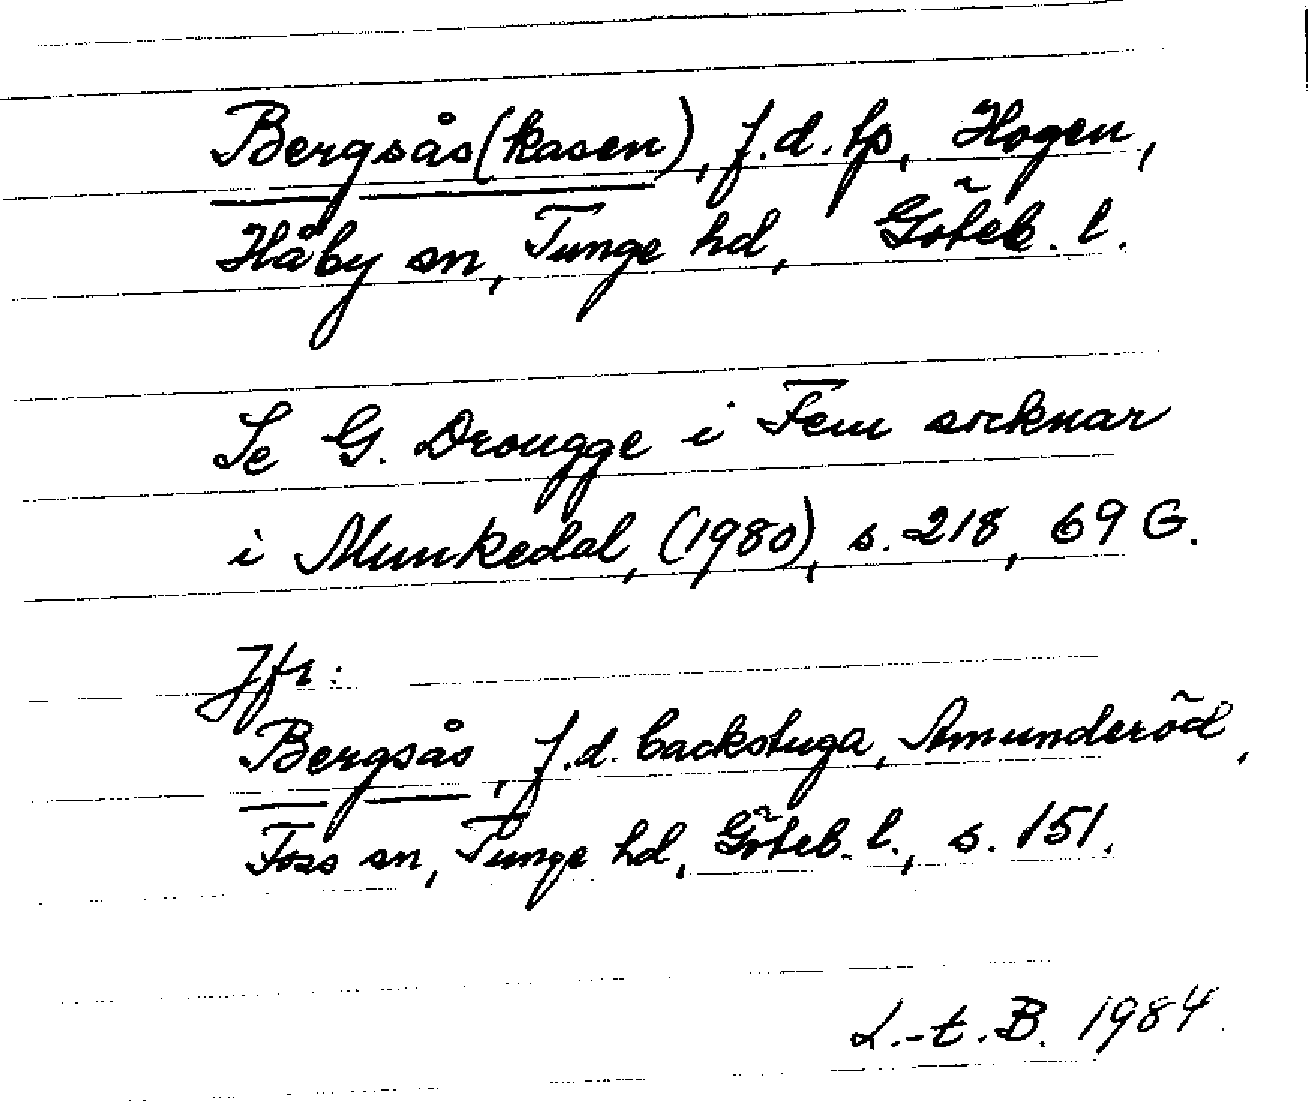 Bergsås(kasen), f.d. tp, Hogen,
Håby sn, Tunge hd, Göteb. l.
Se G. Drougge i Fem socknar
i Munkedal, (1980), s. 218, 69 G.
Jfr:
Bergsås, f.d. backstuga, Amunderöd,
Foss sn, Tunge hd, Göteb. l., s. 151.
L.-t. B. 1984.